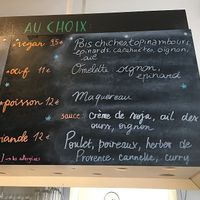 AU CHOIX:
vegan 9.5€ Pois chiches, topinambours,
épinards, cacahuètes, oignon,
ail
oeuf 11€ Omelette oignon,
épinard
poisson 12€ Maquereau
sauce: crème de soja, ail des
ours, oignon
viande 12€ Poulet, poireaux, herbes de
Provence, cannelle, curry